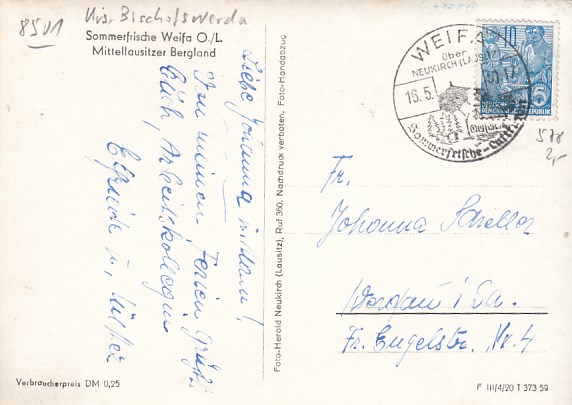 8501
Krs. Bischofswerda
Sommerfrische Weifa O./L.
Mittellausitzer Bergland
Liebe Johanna
Von meinen Ferien grüßt
Euch, Arbeitskollegin
Elfriede u.
Verbraucherpreis DM 0,25
Foto-Herold Neukirch (Lausitz), Ruf 360. Nachdruck verboten. Foto-Handabzug
WEIFA
über
NEUKIRCH (LAUSITZ)
16.5.
Sommerfrische-
10
5
DEUTSCHE
DEMOKRATISCHE REPUBLIK
578
2,-
Fr.
Johanna Scheller
i. Sa.
Fr. Engelstr. Nr. 4
F III/4/20 T 373 59